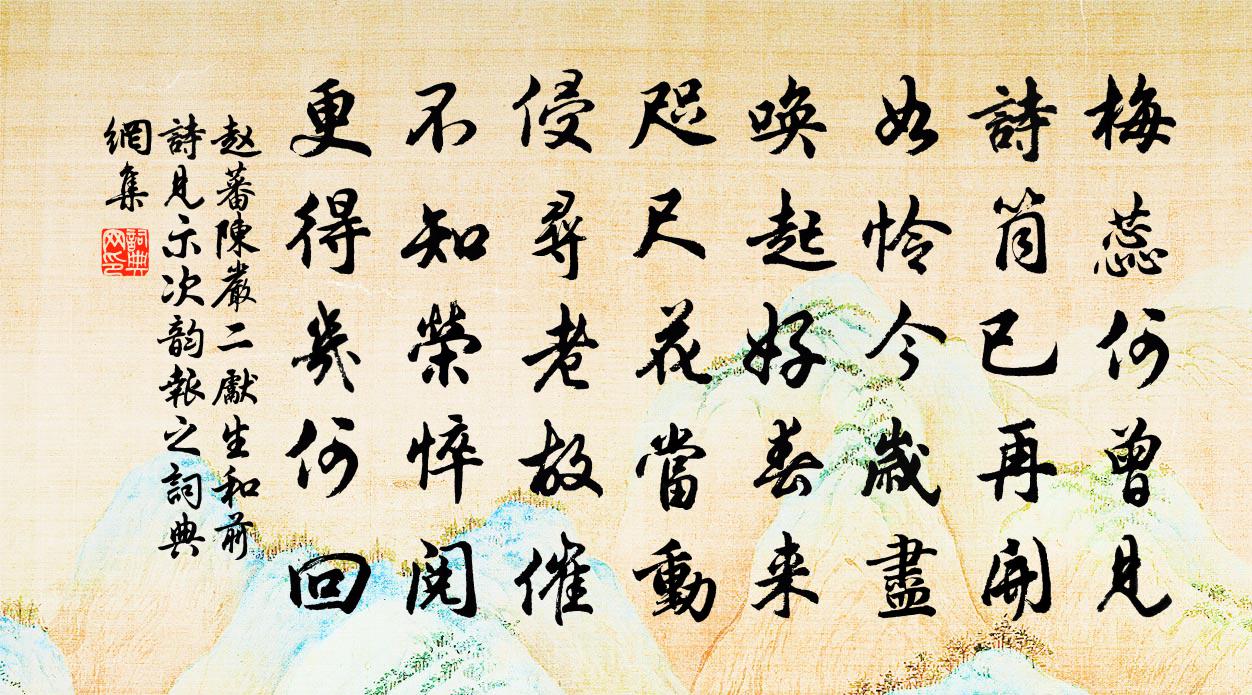 梅蕊何曾見
詩筒已再開
始憐今歲盡
喚起好春来
咫尺花當動
侵尋老故催
不知榮悴閱
更得幾何回
赵蕃陳嚴二獻生和前
詩見示次韵報之詞典
網集
詞典網印